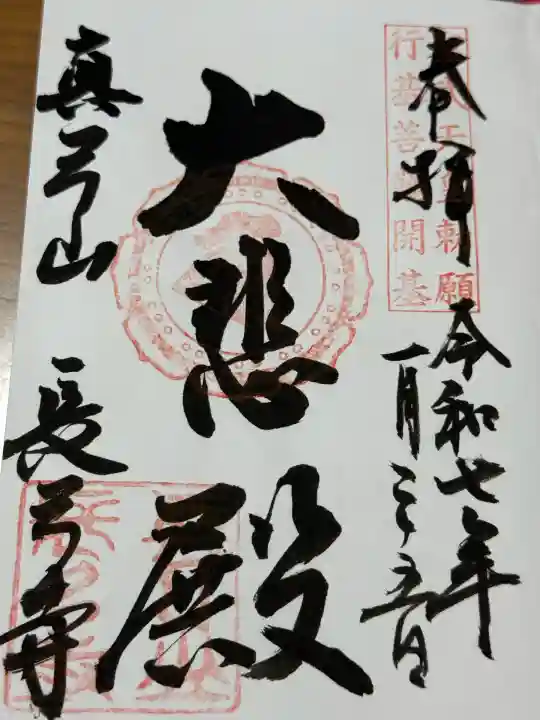 奉拝
令和七年
一月二五日
行基菩薩開基
大悲殿
真弓山
長弓寺